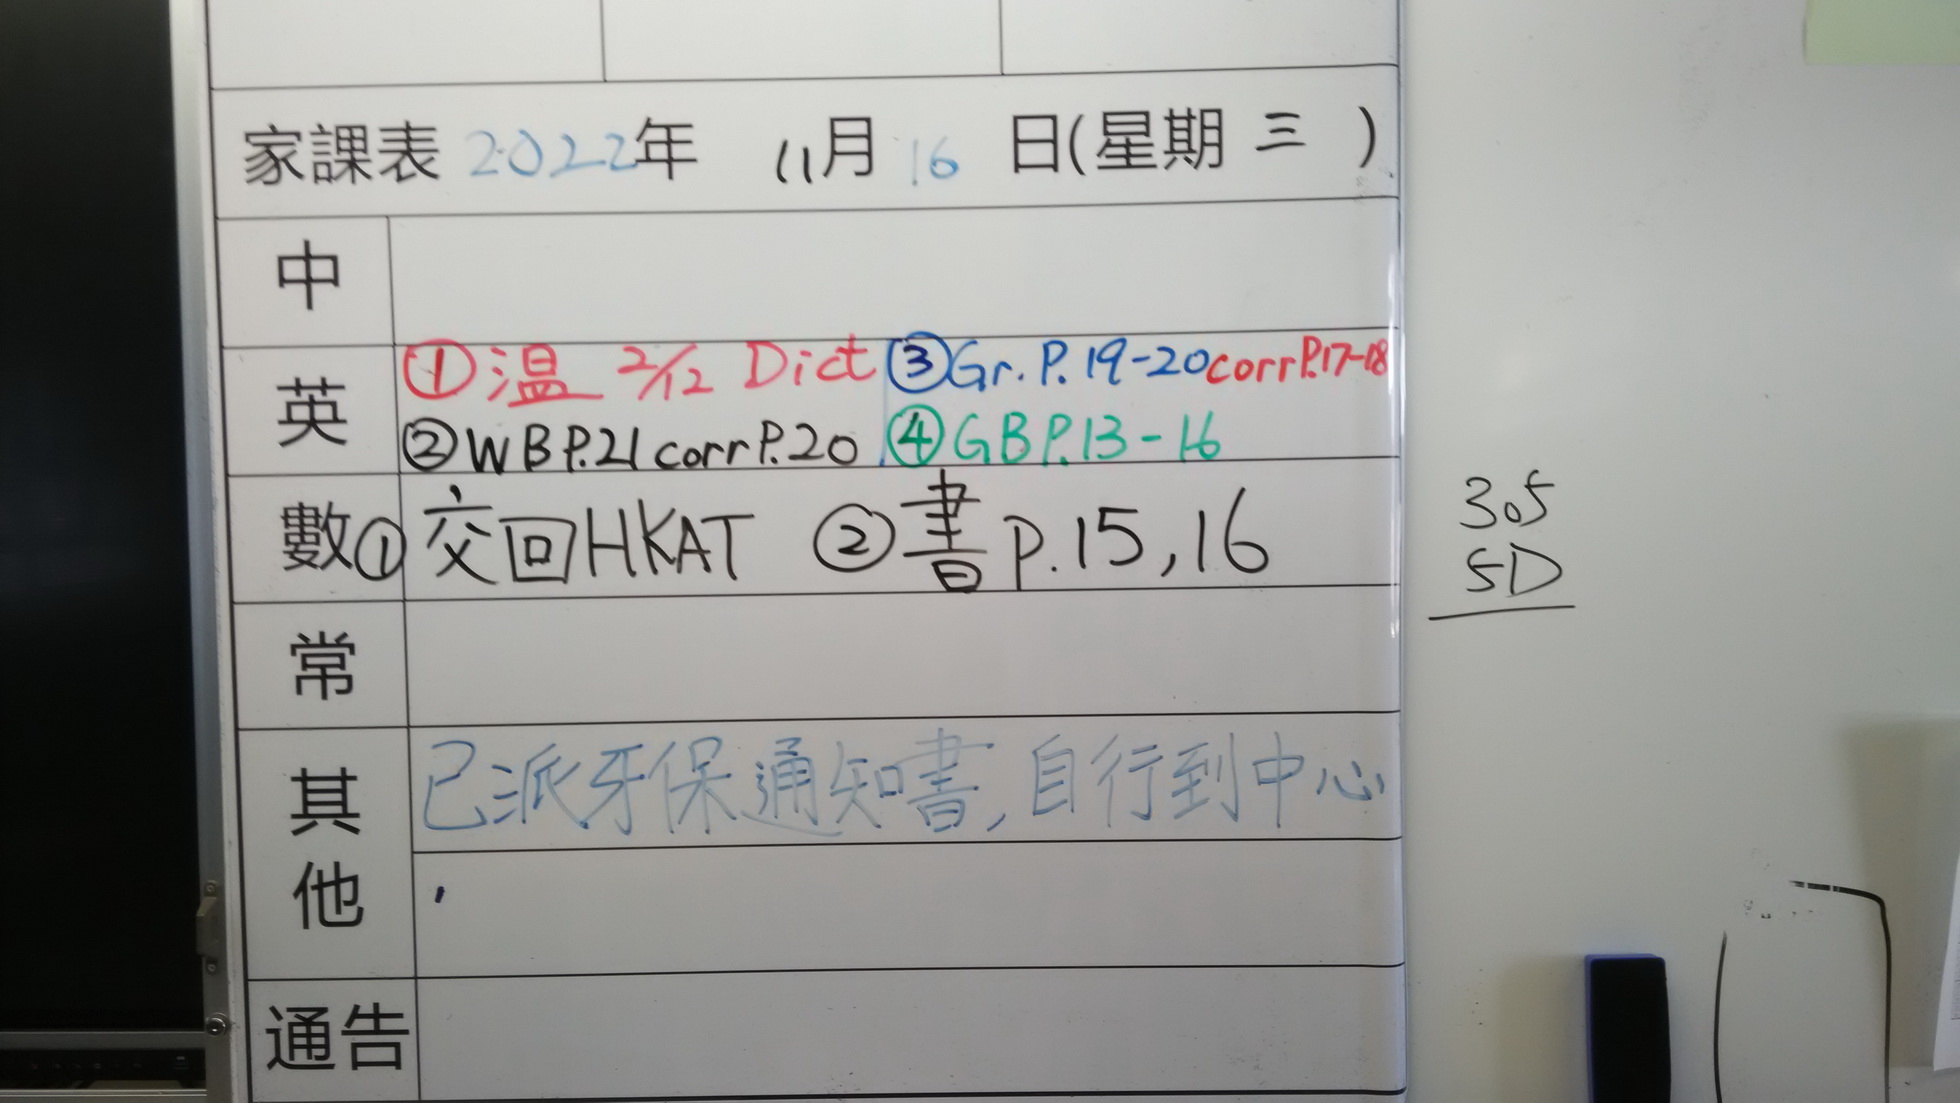 家課表 2022年 11月 16 日(星期 三 )
中
英 ①温 2/12 Dict ③Gr. P. 19-20 corr P.17-18
②WB P.21 corr P.20 ④GB P.13-16
數 ①交回HKAT ②書 p.15,16
305
5D
常
其他 已派牙保通知書,自行到中心
通告